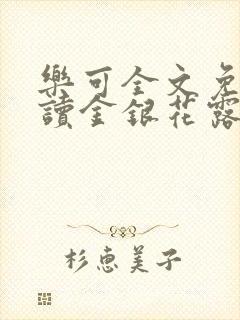 樂可全文免
讀金銀花露
杉惠美子